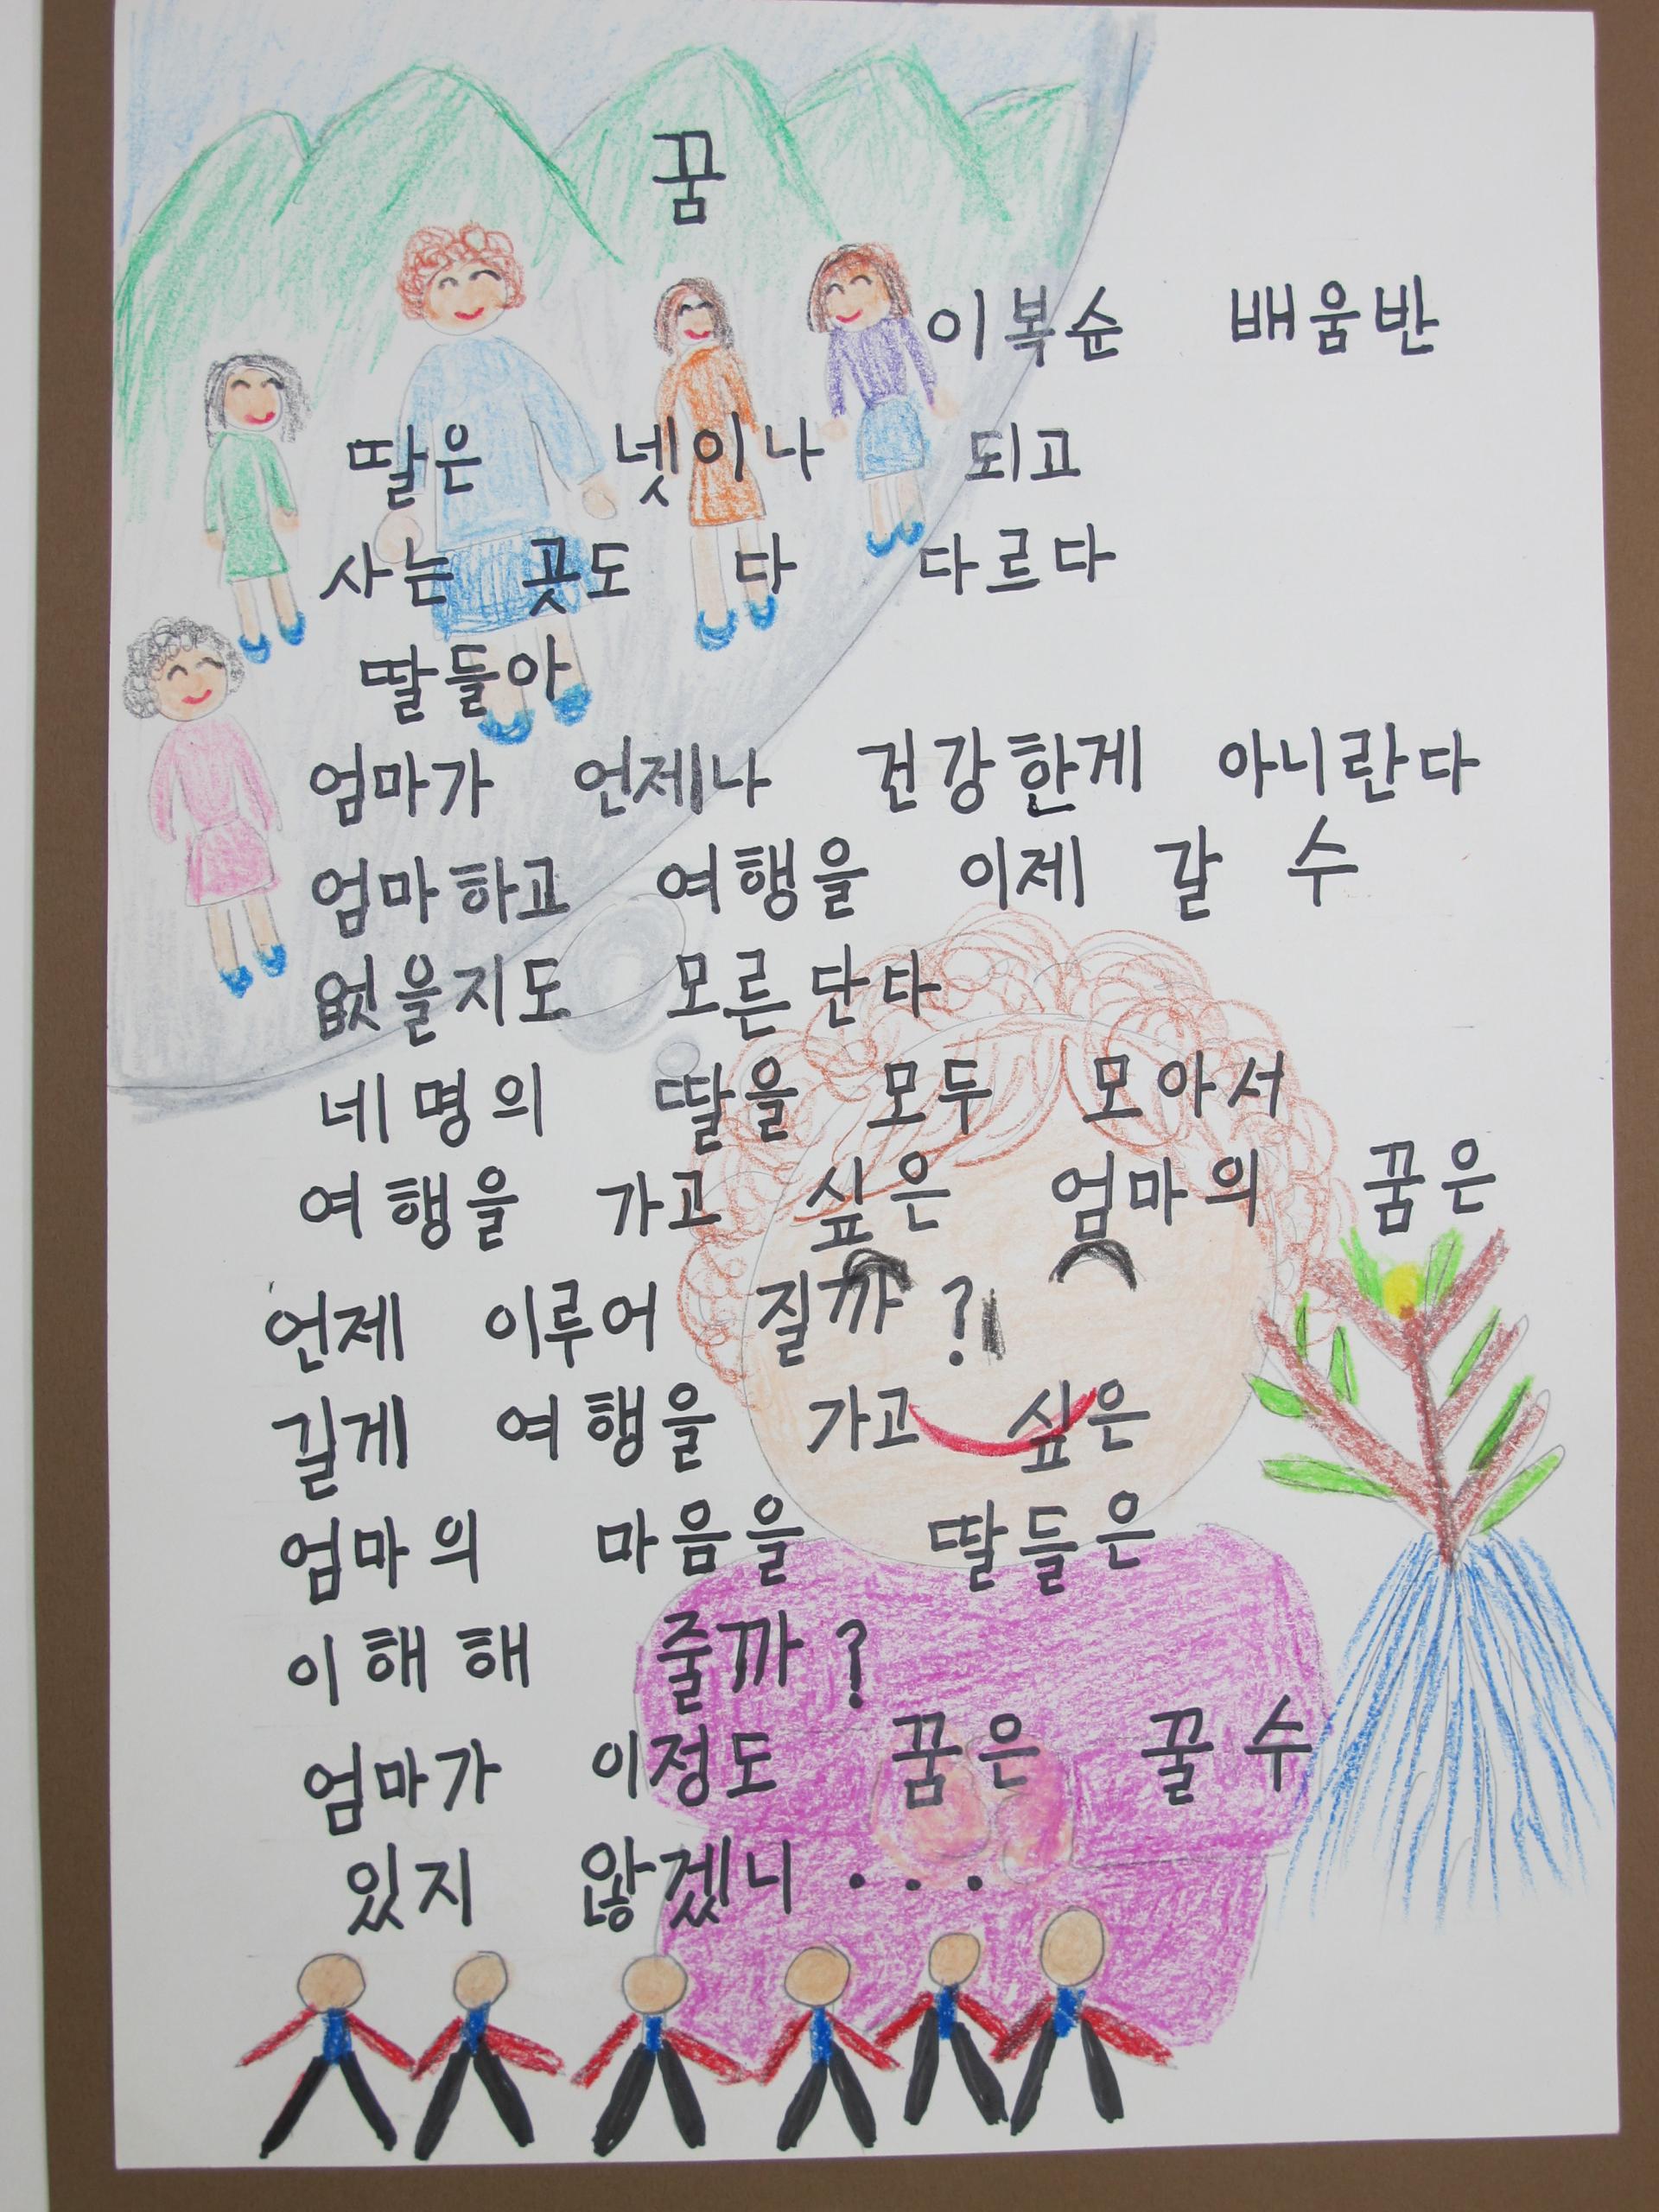 꿈
이복순 배움반
딸은 넷이나 되고
사는 곳도 다 다르다
딸들아
엄마가 언제나 건강한게 아니란다
엄마하고 여행을 이제 갈 수
없을지도 모른단다
네명의 딸을 모두 모아서
여행을 가고 싶은 엄마의 꿈은
언제 이루어 질까?
길게 여행을 가고 싶은
엄마의 마음을 딸들은
이해해 줄까?
엄마가 이정도 꿈은 꿀수
있지 않겠니...